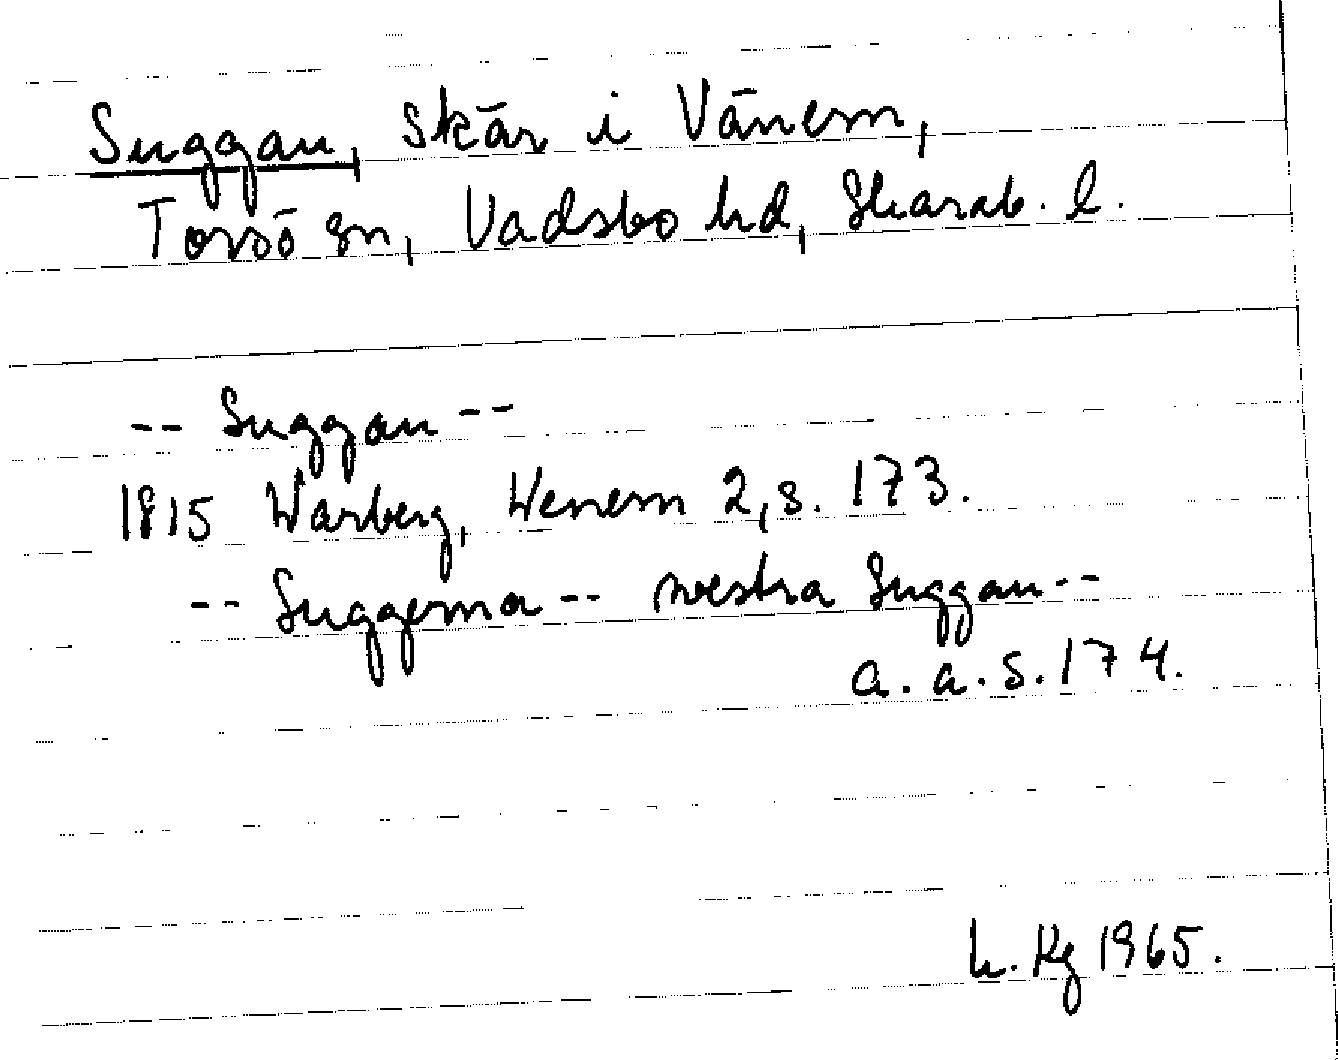 Suggan, skär i Vänern,
Torsö sn, Vadsbo hd, Skarab. l.
-- Suggan --
1815 Warberg, Wenern 2, s. 173.
-- Suggerna -- westra Suggan --
a. a. s. 174.
1965.